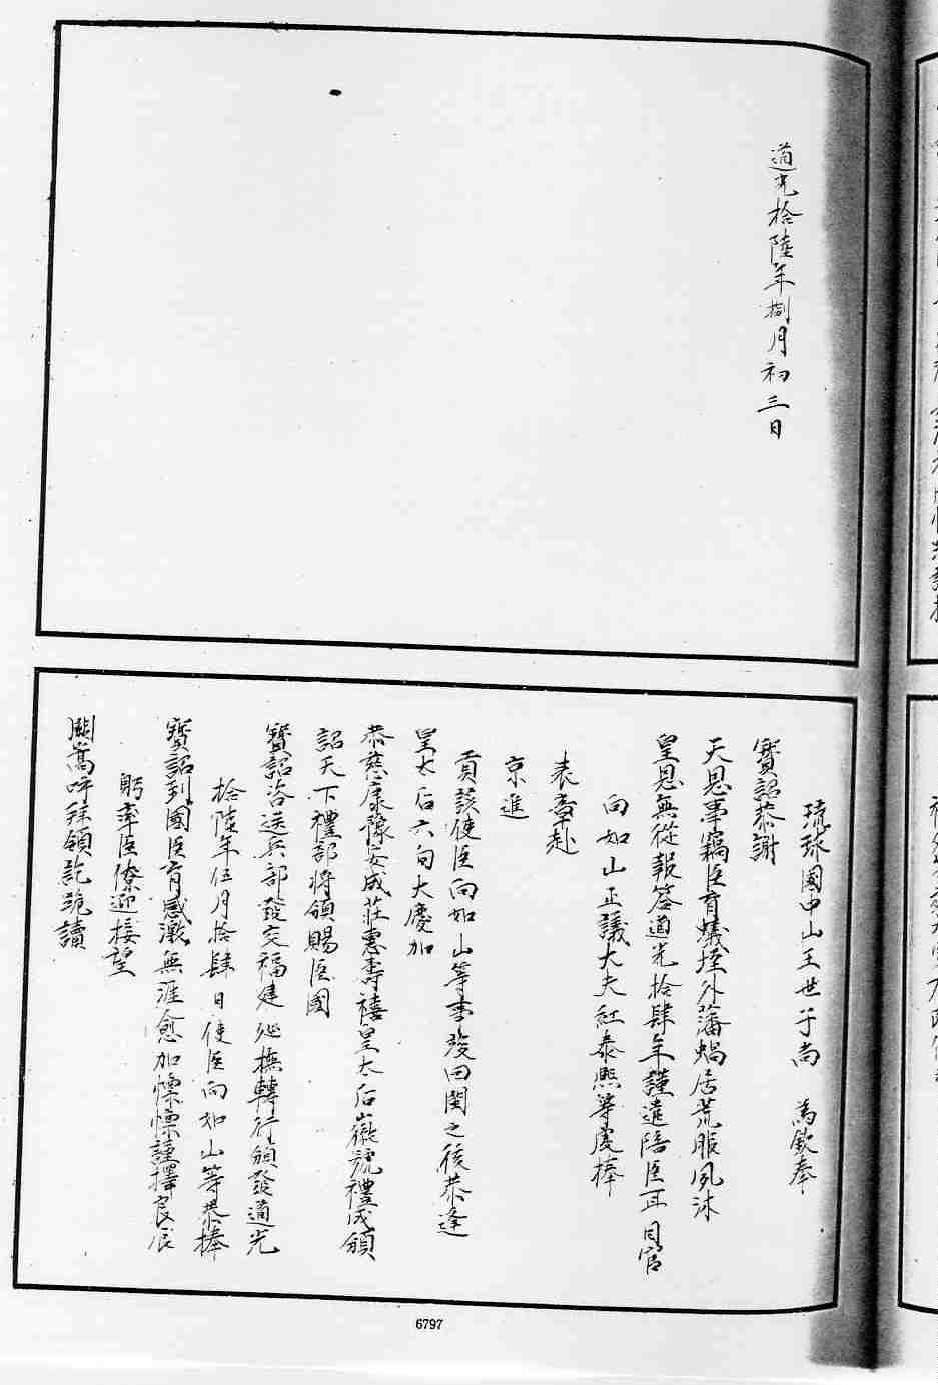 道光拾陸年捌月初三日
琉球國中山王世子尚　為欽奉
寶詔恭謝
天恩事竊臣育蟻垤外藩蝸居荒服夙沐
皇恩無從報答道光拾肆年謹遣陪臣耳目官
向如山正議大夫紅泰熙等虔捧
表章赴
京進
貢該使臣向如山等事竣回閩之後恭逢
皇太后六旬大慶加
恭慈康豫安成莊惠壽禧皇太后徽號禮成頒
詔天下禮部將頒賜臣國
寶詔咨送兵部發交福建巡撫轉行頒發道光
拾陸年伍月拾肆日使臣向如山等恭捧
寶詔到國臣育感激無涯愈加懔懔謹擇良辰
躬率臣僚迎接望
闕嵩呼拜領訖跪讀
6797